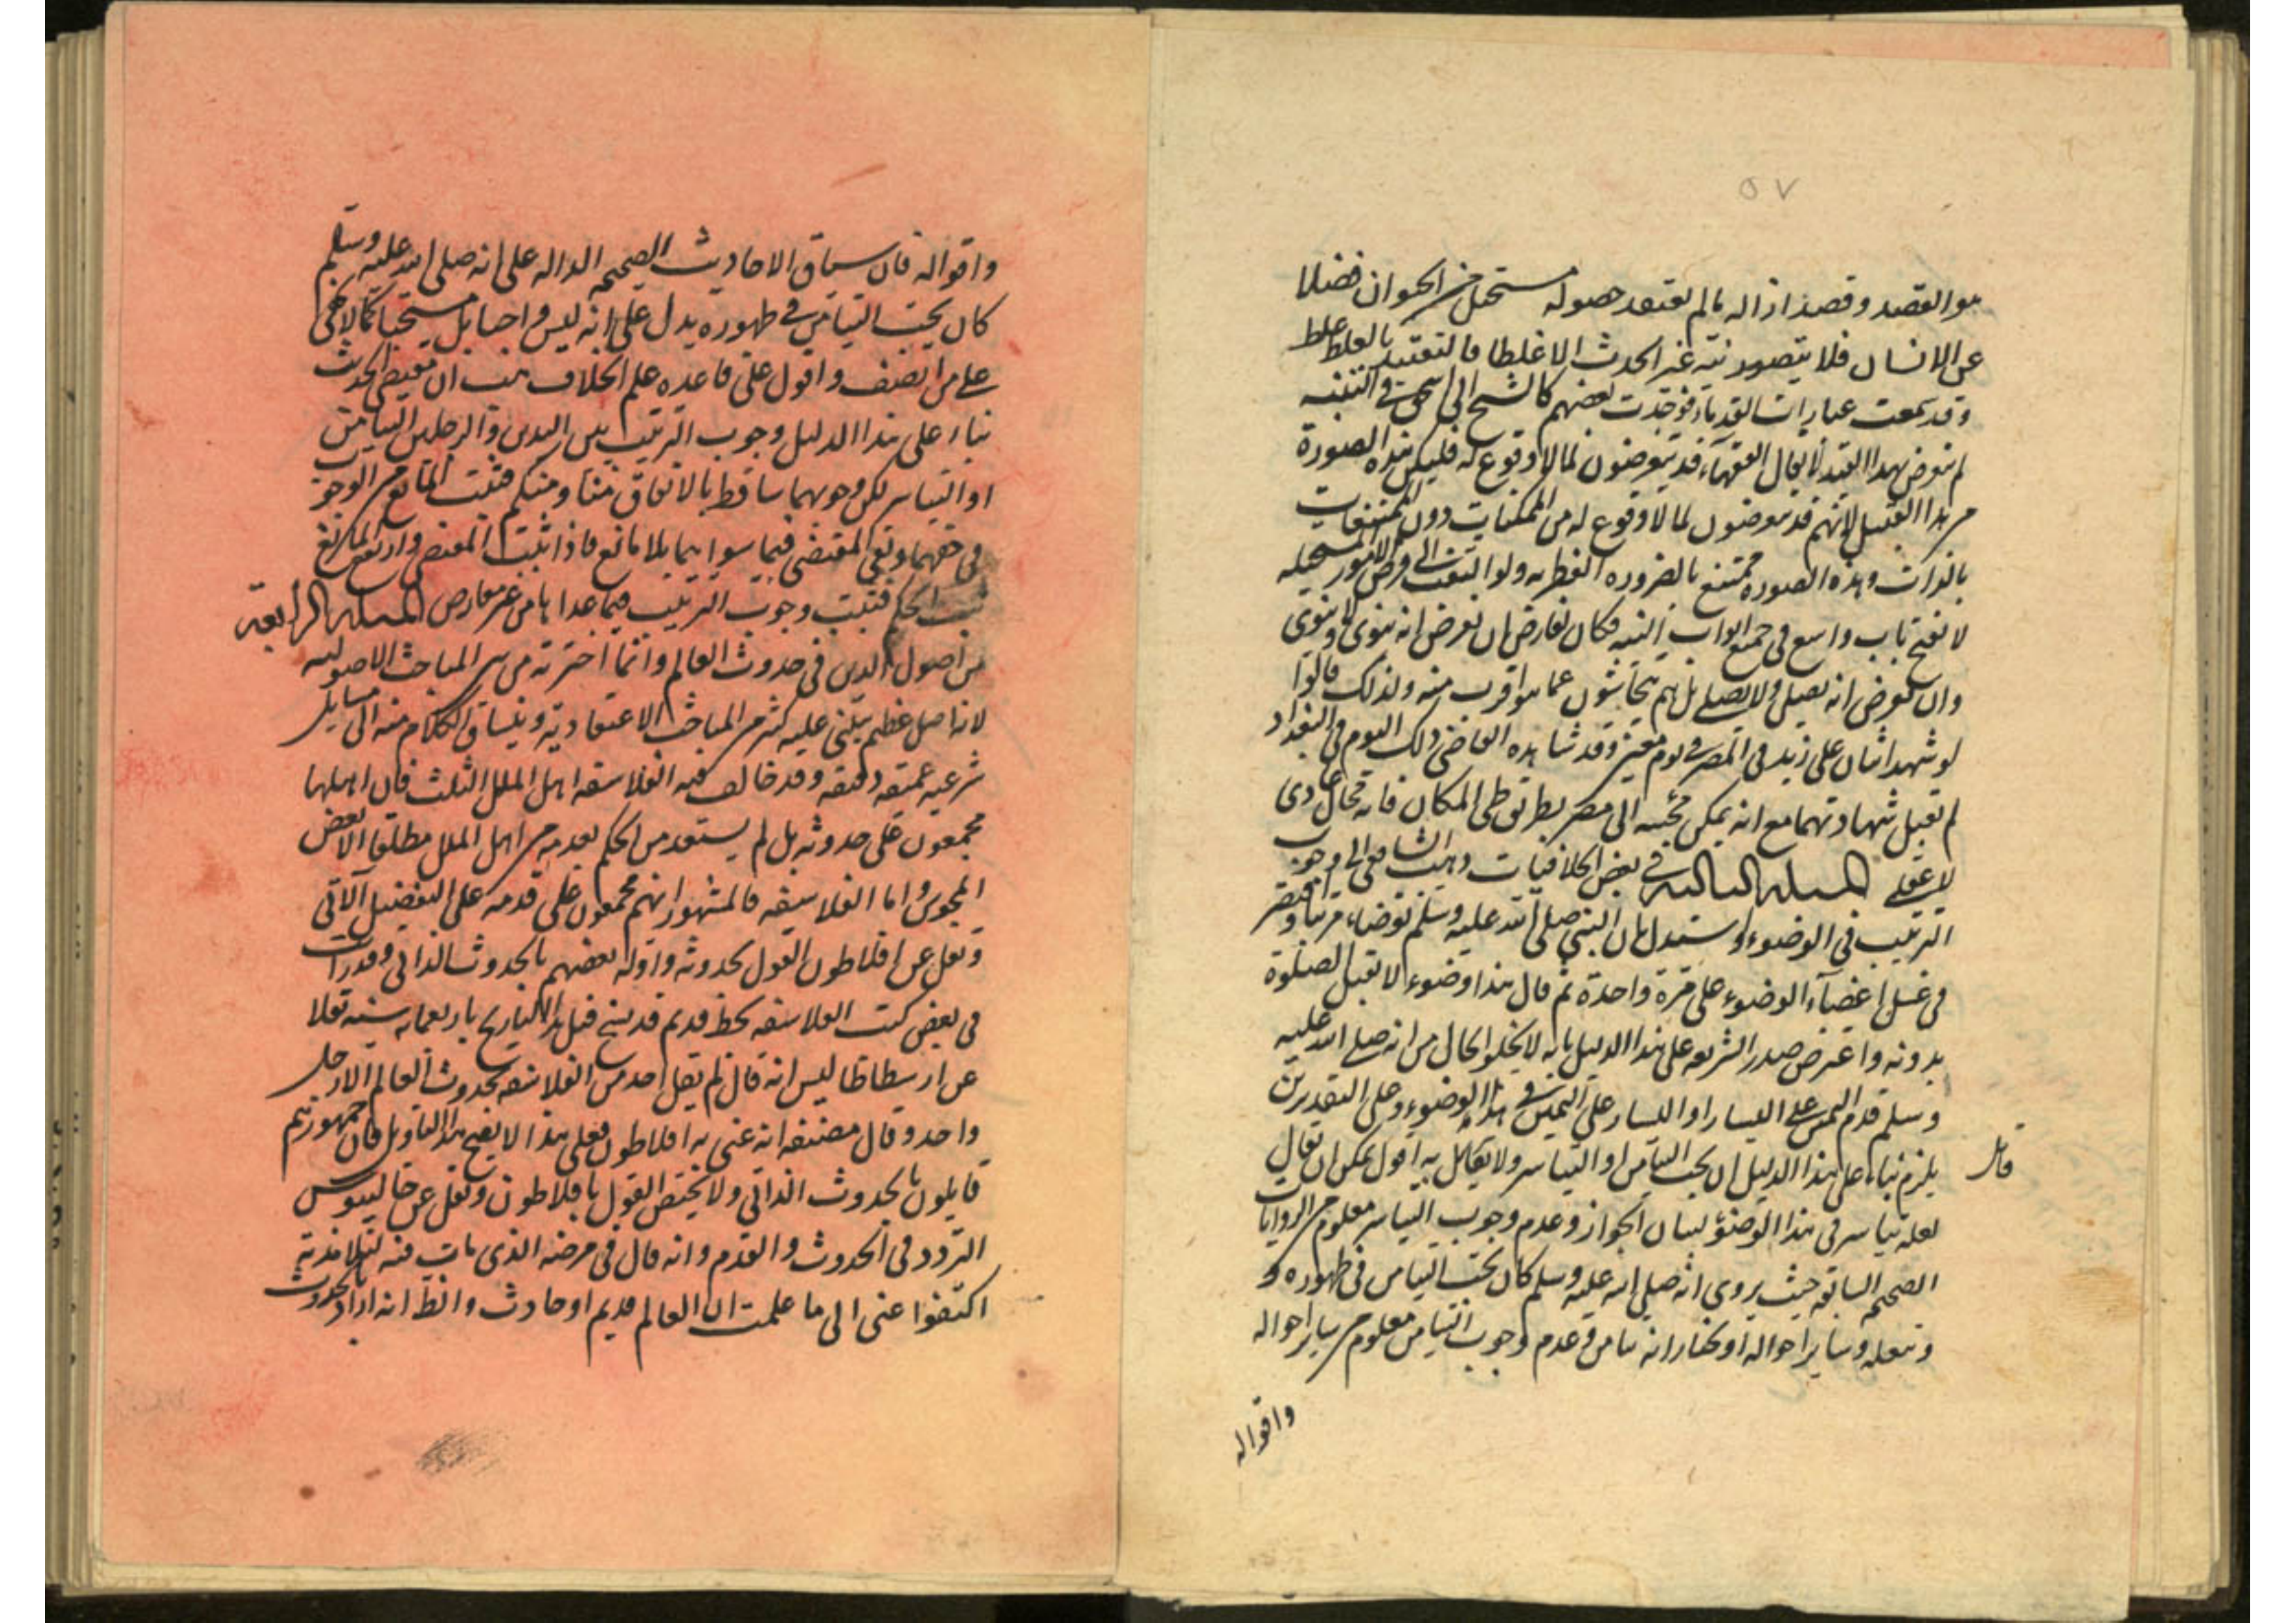 ٥٧
هو القصد وقصد ازاله ما لم يعتقد حصوله مستحيل من الحيوان فضلا
عن الانسان فلا يتصور نية غير الحدث الا غلطا فالتقييد بالغلط غلط
وقد تتبعت عبارات القدماء فوجدت بعضهم كالشيخ ابي اسحق في التنبيه
لم يتعرض بهذا القيد لا يقال الفقهاء قد يتعرضون لما لا وقوع له فليكن هذه الصورة
من هذا القبيل لانهم قد يتعرضون لما لا وقوع له من الممكنات دون الممتنعات
بالذات وهذه الصورة ممتنع بالضروره الفطريه ولو التفت الى فرض الامور المستحيله
لانفتح باب واسع في جميع ابواب النيه فكان لفارض ان يفرض انه ينوي ولا ينوي
وان يفرض انه يصلي ولا يصلي بل هم يتحاشون عما هو اقرب منه ولذلك قالوا
لو شهد اثنان على زيد في المصر في يوم معين وقد شاهده القاضي ذلك اليوم في البغداد
لم تقبل شهادتهما مع انه يمكن مجيئه الى مصر بطريق طي المكان فانه محال عادي
لا عقلي المسئله الثالثه في بعض الخلافيات ذهب الشافعي الى وجوب
الترتيب في الوضوء واستدل بان النبي صلى الله عليه وسلم توضاء مرتبا واقتصر
في غسل اعضاء الوضوء على مرة واحدة ثم قال هذا وضوء لا تقبل الصلوة
بدونه واعترض صدر الشريعه على هذا الدليل بانه لا يخلو الحال من انه صلى الله عليه
وسلم قدم اليمين على اليسار او اليسار على اليمين في هذا الوضوء وعلى التقديرين
يلزم بناء على هذا الدليل ان يجب التيامن او التياسر ولا يقايل به اقول يمكن ان يقال
قايل
لعله تياسر في هذا الوضوء لبيان الجواز وعدم وجوب التياسر معلوم من الروايات
الصحيحه السابقه حيث يروي انه صلى الله عليه وسلم كان يحب التيامن في طهوره و
وتنعله وساير احواله او نختار انه تيامن وعدم وجوب التيامن معلوم من ساير احواله
واقواله
واقواله فان سياق الاحاديث الصحيحه الداله على انه صلى الله عليه وسلم
كان يحب التيامن في طهوره يدل على انه ليس واجبا بل مستحبا كما لا يخفى
على من انصف واقول على قاعده علم الخلاف هب ان مقتضى الحديث
بناء على هذا الدليل وجوب الترتيب بين اليدين والرجلين التيامن
او التياسر لكن وجوبهما ساقط بالاتفاق منا ومنكم فثبت المانع من الوجوب
في حقهما وبقي المقتضي فيما سواهما بلا مانع فاذا ثبت المقتضي وارتفع المانع
ثبت الحكم فثبت وجوب الترتيب فيما عداها من غير معارض المسئله الرابعة
من اصول الدين في حدوث العالم وانما اخترته من بين المباحث الاصوليه
لانه اصل عظيم يبتني عليه كثير من المباحث الاعتقادية وينساق الكلام منه الى مسايل
شرعيه عميقه دقيقه وقد خالف فيه الفلاسفه اهل الملل الثلث فان اهلها
مجمعون على حدوثه بل لم يستعد من الحكم بقدمه من اهل الملل مطلقا الا بعض
المجوس واما الفلاسفه فالمشهور انهم مجمعون على قدمه على التفضيل الآتي
ونقل عن افلاطون القول بحدوثه واوله بعضهم بالحدوث الذاتي وقد رات
في بعض كتب الفلاسفه بخط قديم قد نسخ قبل هذا التاريخ باربعمايه سنه نقلا
عن ارسطاطاليس انه قال لم يقل احد من الفلاسفه بحدوث العالم الا رجل
واحد وقال مصنفه انه عنى به افلاطون فعلى هذا لا يصح هذا التاويل فان جمهورهم
قايلون بالحدوث الذاتي ولا يختص القول بافلاطون ونقل عن جالينوس
التردد في الحدوث والقدم وانه قال في مرضه الذي مات فيه لتلامذته
اكتفوا عني الى ما علمت ان العالم قديم او حادث والظ انه اراد بالحدوث